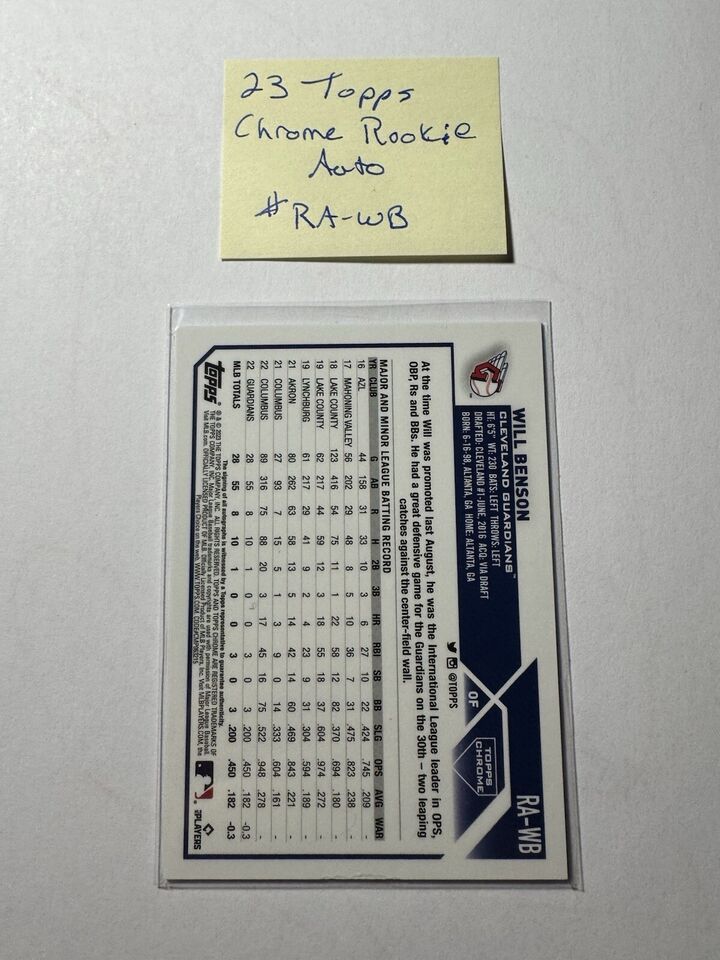 23 Topps
Chrome Rookie
Auto
#RA-WB
RA-WB
TOPPS
CHROME
OF
WILL BENSON
CLEVELAND GUARDIANS™
HT: 6'5" WT: 230 BATS: LEFT THROWS: LEFT
DRAFTED: CLEVELAND #1-JUNE, 2016 ACQ: VIA DRAFT
BORN: 6-16-98, ALTANTA, GA HOME: ALTANTA, GA
@TOPPS
At the time Will was promoted last August, he was the International League leader in OPS,
OBP, Rs and BBs. He had a great defensive game for the Guardians on the 30th – two leaping
catches against the center-field wall.
MAJOR AND MINOR LEAGUE BATTING RECORD
YR CLUB G AB R H 2B 3B HR RBI SB BB SLG OPS AVG WAR
16 AZL 44 158 31 33 10 3 6 27 10 22 .424 .745 .209 -
17 MAHONING VALLEY 56 202 29 48 8 5 10 36 7 31 .475 .823 .238 -
18 LAKE COUNTY 123 416 54 75 11 1 22 58 12 82 .370 .694 .180 -
19 LAKE COUNTY 62 217 44 59 12 3 18 55 18 37 .604 .974 .272 -
19 LYNCHBURG 61 217 29 41 9 2 4 23 9 31 .304 .594 .189 -
21 AKRON 80 262 63 58 13 5 14 42 14 60 .469 .843 .221 -
21 COLUMBUS 27 93 7 15 5 1 3 9 0 14 .333 .604 .161 -
22 COLUMBUS 89 316 75 88 20 3 17 45 16 75 .522 .948 .278 -
22 GUARDIANS 28 55 8 10 1 0 0 3 0 3 .200 .450 .182 -0.3
MLB TOTALS 28 55 8 10 1 0 0 3 0 3 .200 .450 .182 -0.3
The signing of all autographs is witnessed by a Topps representative to guarantee authenticity.
topps®
® & © 2023 THE TOPPS COMPANY, INC. ALL RIGHTS RESERVED. TOPPS AND TOPPS CHROME ARE REGISTERED TRADEMARKS OF
THE TOPPS COMPANY, INC. Major League Baseball trademarks and copyrights are used with permission of Major League Baseball.
Visit MLB.com. OFFICIALLY LICENSED PRODUCT OF MLB Players, Inc. Visit MLBPLAYERS.COM, the
Players Choice on the web. WWW.TOPPS.COM
PLAYERS